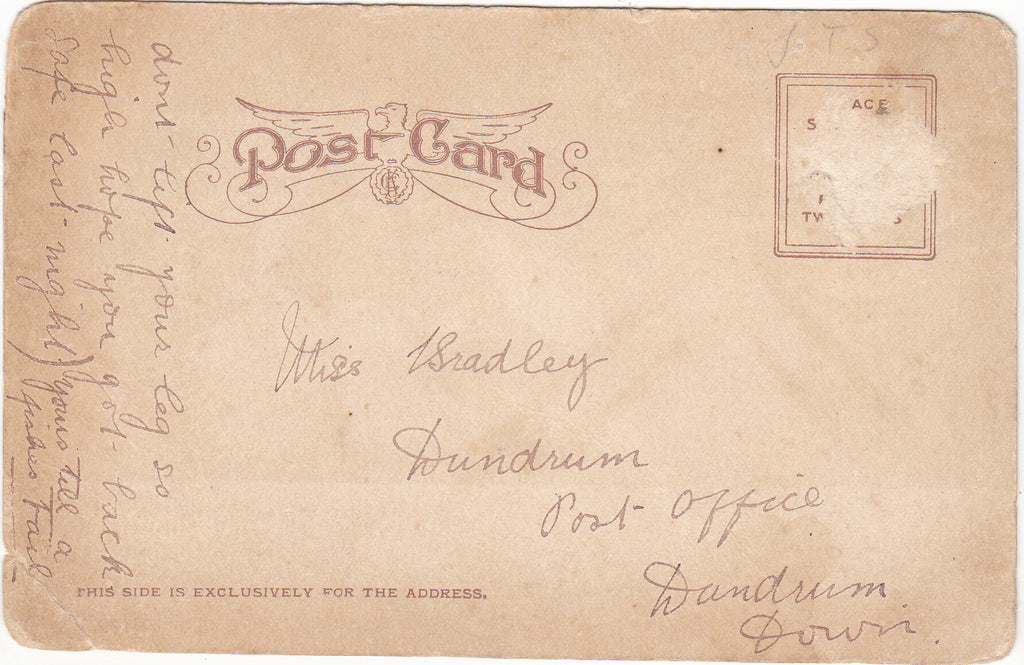 J.T.S
Post Card
ACE
S
TW S
Miss Bradley
Dundrum
Post Office
Dundrum
Down.
THIS SIDE IS EXCLUSIVELY FOR THE ADDRESS.
dont lift your leg so
high hope you got back
safe last night)
yours till a
fishes tail